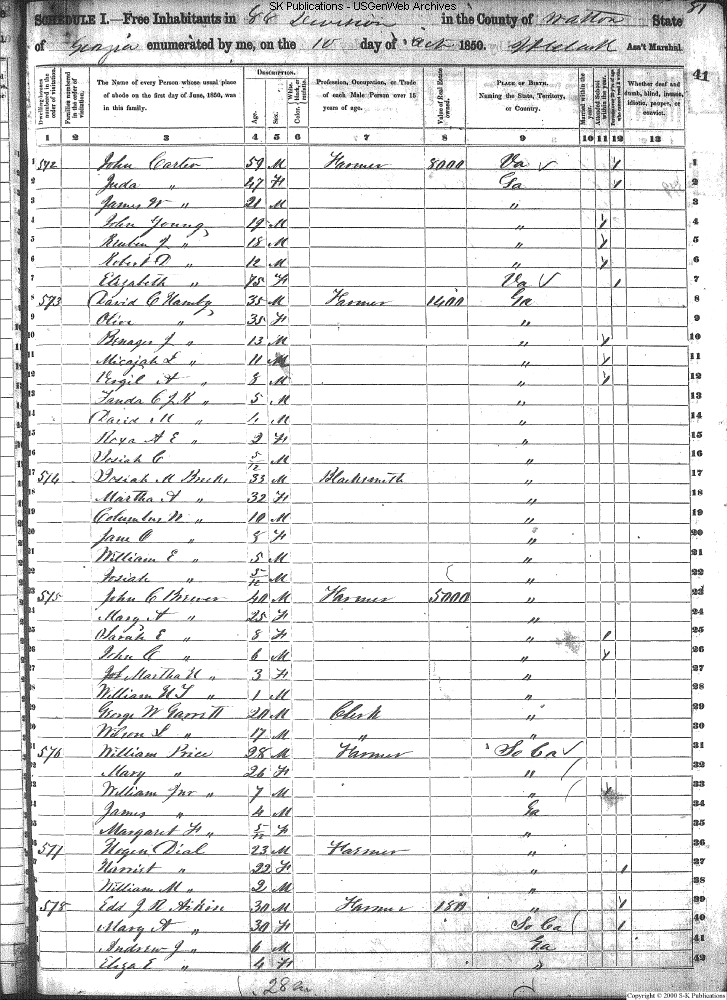 SK Publications - USGenWeb Archives
SCHEDULE I.—Free Inhabitants in 88 Division in the County of Walton State 81
of Georgia enumerated by me, on the 10 day of Oct 1850. Ass't Marshal.
41
Dwelling-houses numbered in the order of visitation.
Families numbered in the order of visitation.
The Name of every Person whose usual place of abode on the first day of June, 1850, was in this family.
DESCRIPTION.
Age.
Sex.
White, black, or mulatto.
Color.
Profession, Occupation, or Trade of each Male Person over 15 years of age.
Value of Real Estate owned.
PLACE OF BIRTH. Naming the State, Territory, or Country.
Married within the year.
Attended School within the year.
Whether deaf and dumb, blind, insane, idiotic, pauper, or convict.
1 2 3 4 5 6 7 8 9 10 11 12 13
1 572 John Carter 59 M Farmer 8000 Va ✓ / 1
2 Juda " 47 F Ga / 2
3 James W " 21 M " 3
4 John Young 19 M " / 4
5 Reuben J " 18 M " / 5
6 Robert D " 12 M " / 6
7 Elizabeth " 75 F Va ✓ / 7
8 573 David C Hamby 35 M Farmer 1400 Ga 8
9 Olive " 35 F " 9
10 Benager J " 13 M " / 10
11 Micajah L " 11 M " / 11
12 Virgil A " 8 M " / 12
13 C J R " 5 M " 13
14 David M " 4 M " 14
15 Roxa A E " 2 F " 15
16 Josiah C 5/12 M " 16
17 574 Josiah M 33 M Blacksmith " 17
18 Martha A " 32 F " 18
19 Columbus W " 10 M " 19
20 Jane O " 8 F " 20
21 William E " 5 M " 21
22 Josiah " 5/12 M " 22
23 575 John C Brewer 40 M Farmer 5000 " 23
24 Mary A " 25 F " 24
25 Sarah E " 8 F " / 25
26 John C " 6 M " / 26
27 Martha " 3 F " 27
28 William H T " 1 M " 28
29 George W Garrett 20 M Clerk " 29
30 Wilson L " 17 M " " 30
31 576 William Price 28 M Farmer So Ca ✓ 31
32 Mary " 26 F " 32
33 William Jnr " 7 M " / 33
34 James " 4 M Ga 34
35 Margaret F " 5/12 F " 35
36 577 Dial 23 M Farmer " 36
37 Harriet " 22 F " / 37
38 William M " 2 M " 38
39 578 Edd J R Aikin 30 M Farmer 180 " / 39
40 Mary A " 30 F So Ca / 40
41 Andrew J " 6 M Ga 41
42 Eliza E " 4 F " 42
Copyright © 2000 S-K Publications